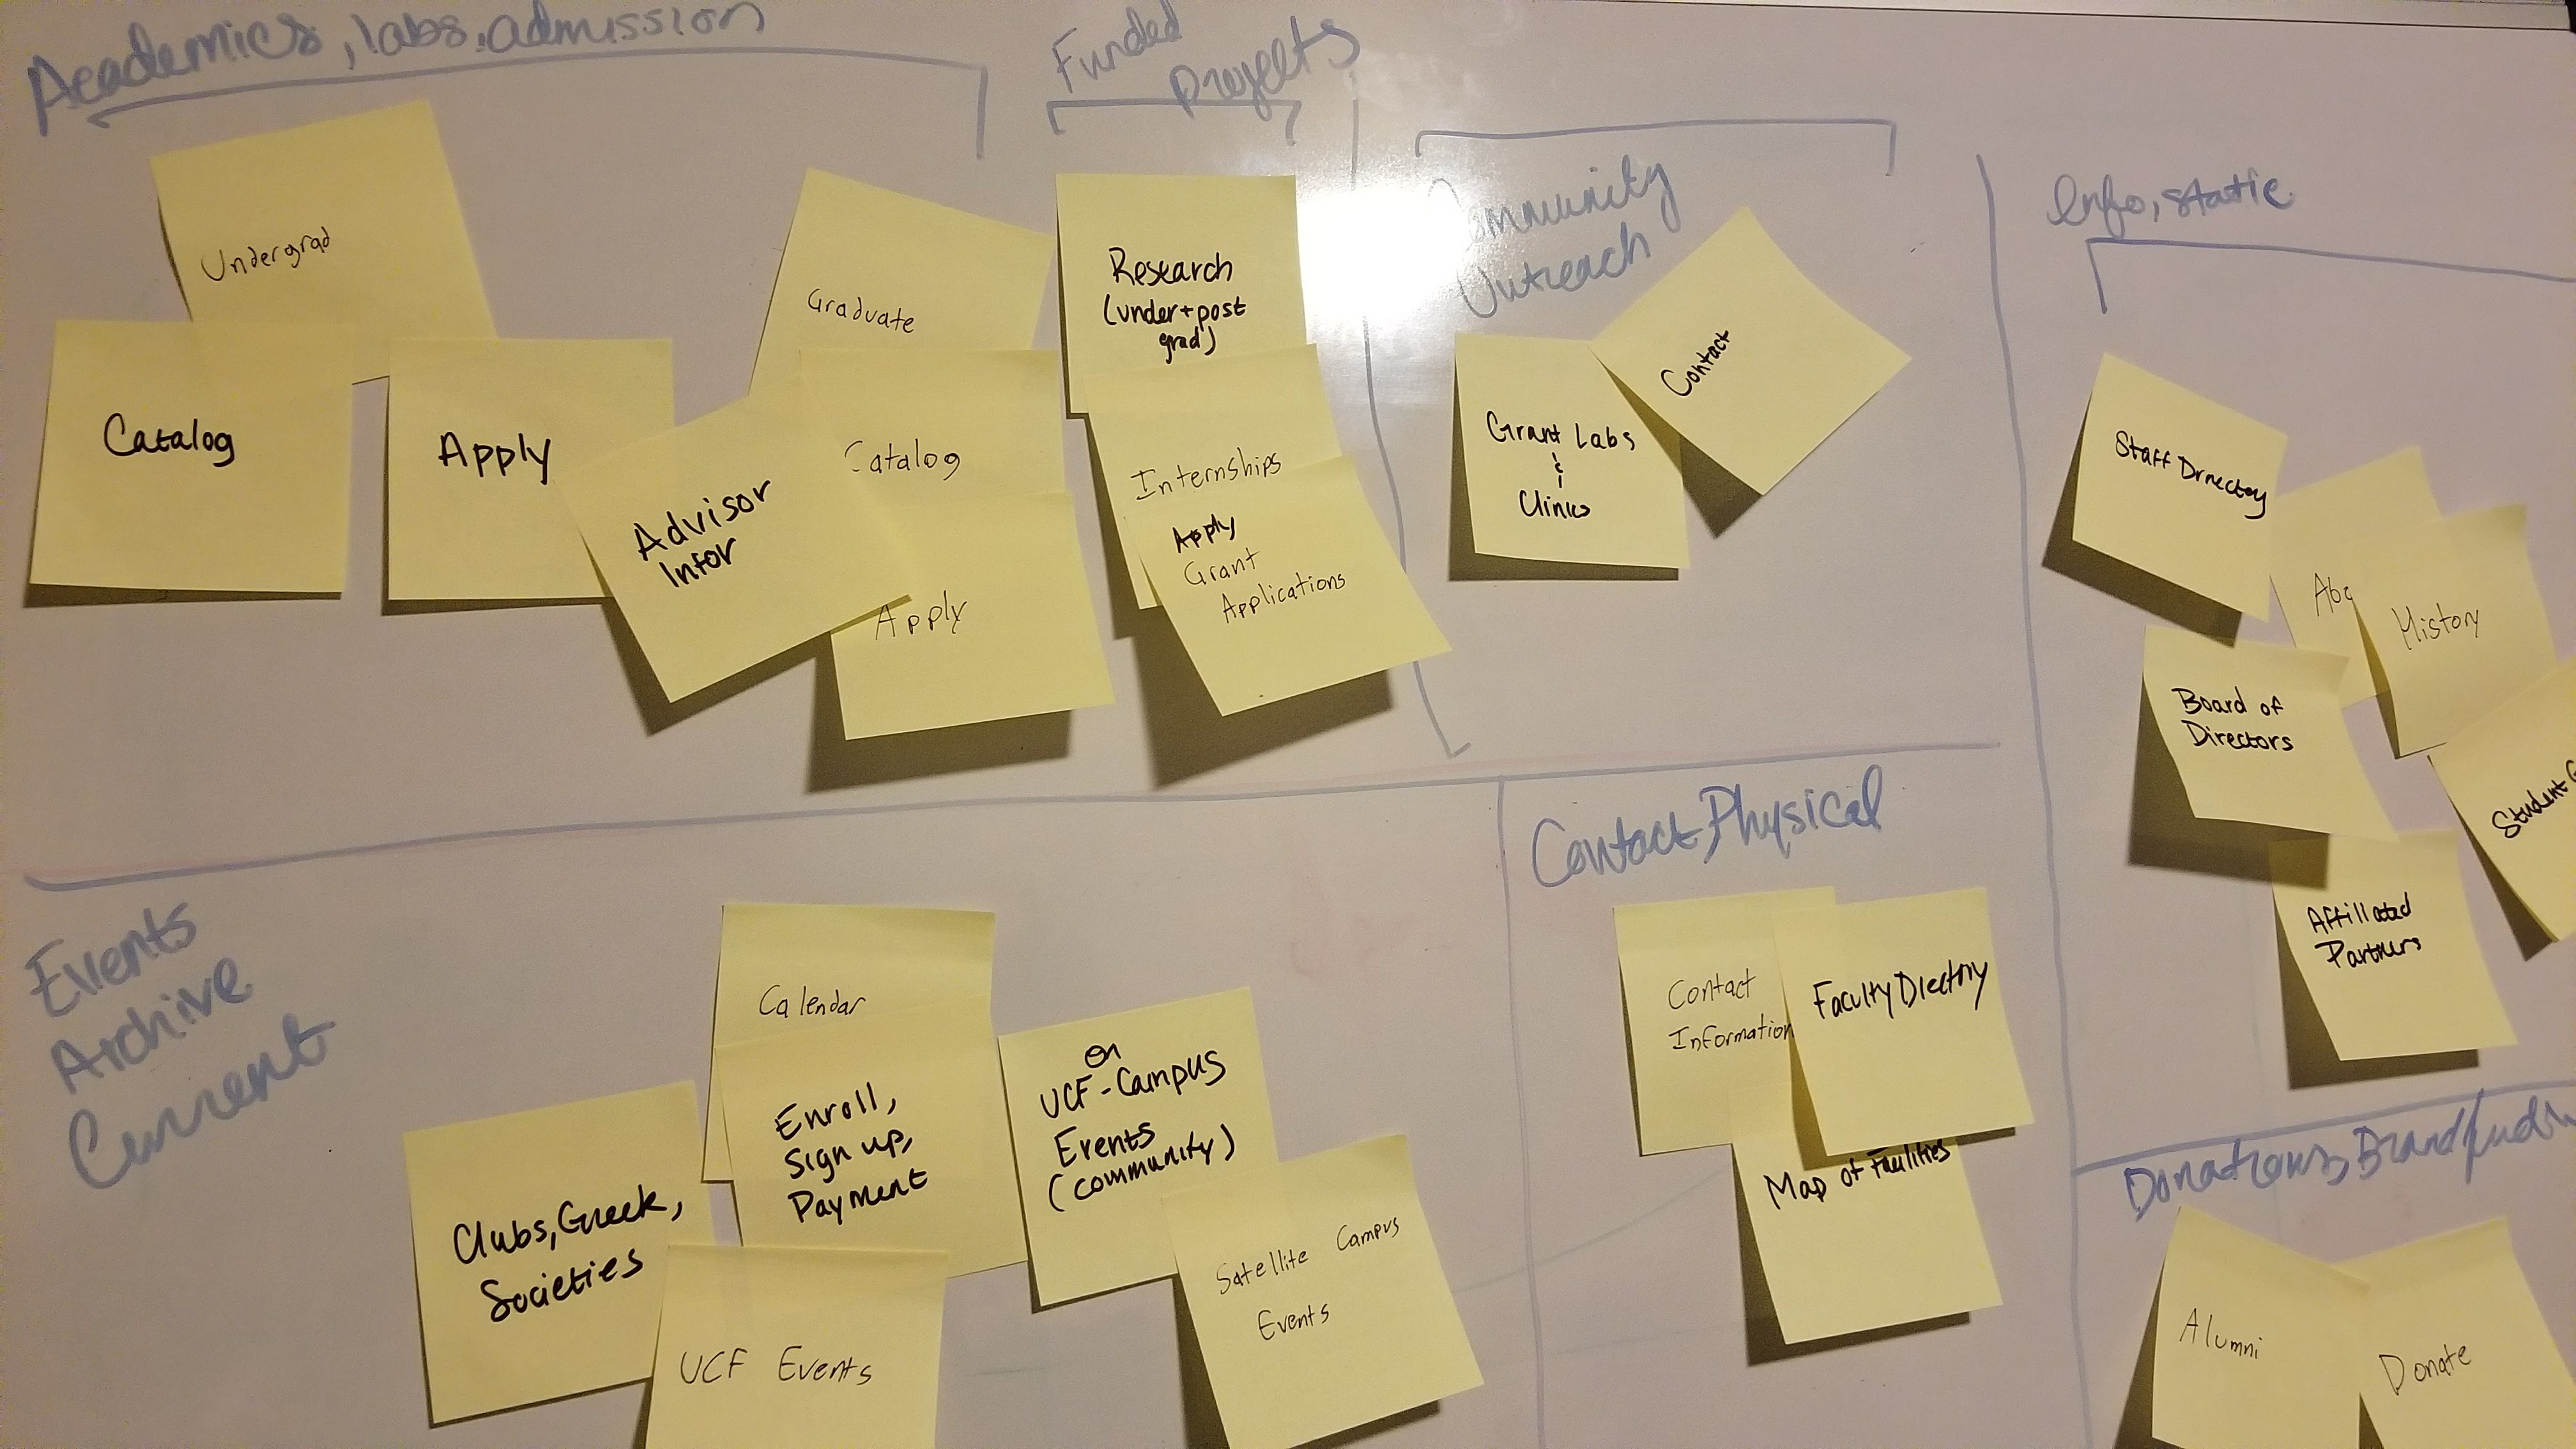 Academics, labs, admission
Undergrad
Catalog
Apply
Advisor
Infor
Graduate
Catalog
Apply
Funded
projects
Research
(under+post
grad)
Internships
Apply
Grant
Applications
Community
Outreach
Grant Labs
&
Clinics
Contact
Info, static
Staff Drrectoy
Abo
History
Board of
Directors
Student
Affillated
Partners
Events
Archive
Current
Calendar
Enroll,
Sign up,
Payment
Clubs, Greek,
Societies
UCF Events
on
UCF-Campus
Events
(community)
Satellite Campus
Events
Contact, Physical
Contact
Information
Faculty Diectory
Map of Facilities
Donations, Brand
Alumni
Donate